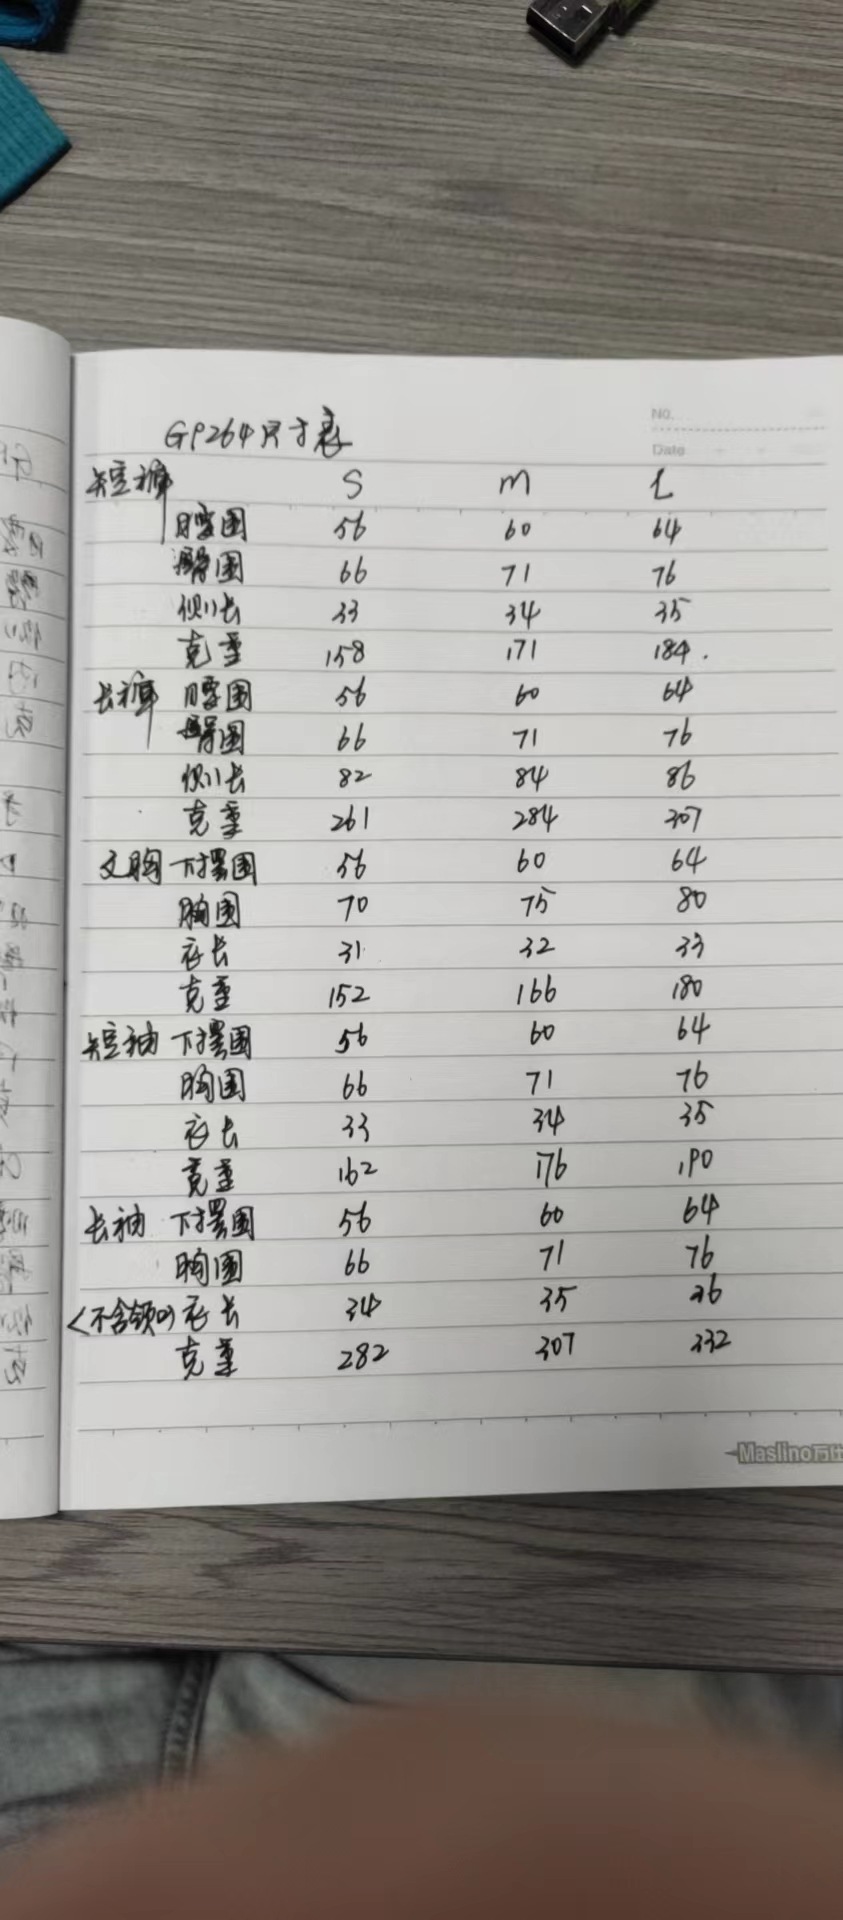 No.
Date
GP264尺寸表
短裤 S m L
腰围 56 60 64
臀围 66 71 76
侧长 33 34 35
克重 158 171 184.
长裤 腰围 56 60 64
臀围 66 71 76
侧长 82 84 86
克重 261 284 307
文胸 下摆围 56 60 64
胸围 70 75 80
衣长 31 32 33
克重 152 166 180
短袖 下摆围 56 60 64
胸围 66 71 76
衣长 33 34 35
克重 162 176 190
长袖 下摆围 56 60 64
胸围 66 71 76
<不含领口> 衣长 34 35 36
克重 282 307 332
Maslino